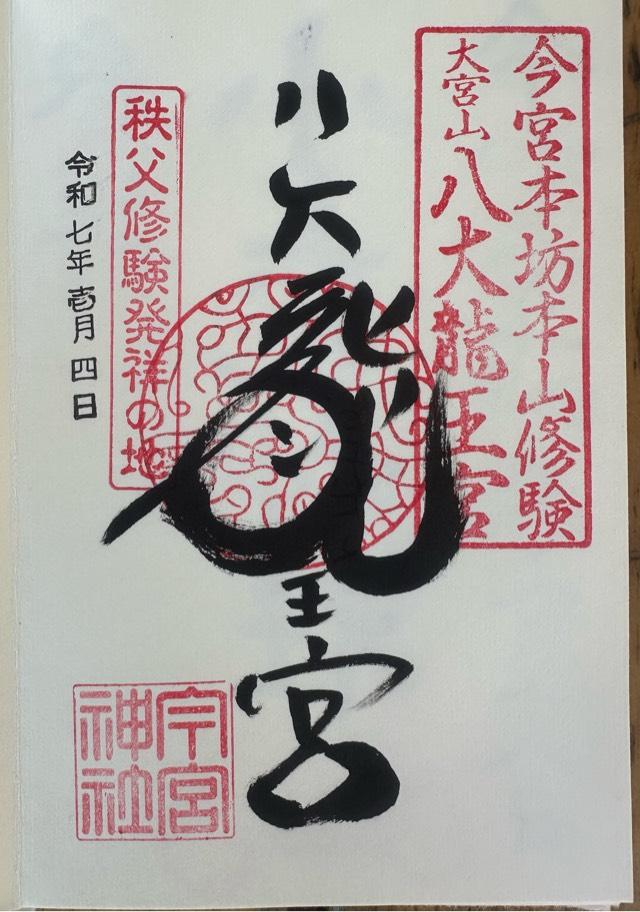 今宮本坊本山修験
大宮山八大龍王宮
八大龍王宮
秩父修験発祥の地
令和七年壱月四日
今宮
神社